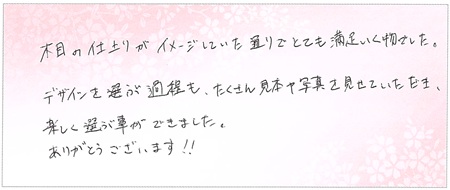 木目の仕上りがイメージしていた通りでとても満足いく物でした。
デザインを選ぶ過程も、たくさん見本や写真を見せていただき、
楽しく選ぶ事ができました。
ありがとうございます!!